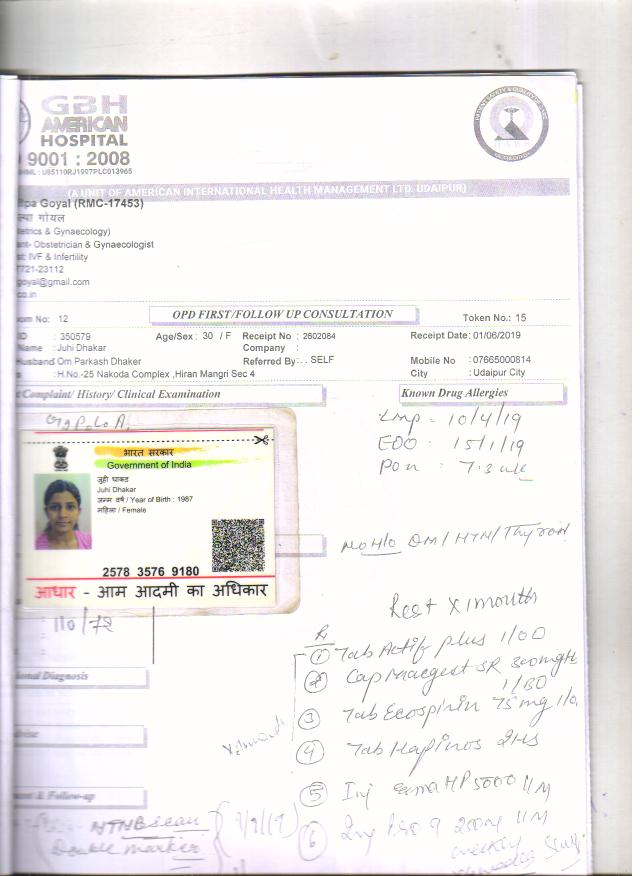 GBH
AMERICAN
HOSPITAL
9001 : 2008
(A UNIT OF AMERICAN INTERNATIONAL HEALTH MANAGEMENT LTD. UDAIPUR)
lpa Goyal (RMC-17453)
गोयल
Obstetrics & Gynaecology)
ant- Obstetrician & Gynaecologist
st: IVF & Infertility
7721-23112
goyal@gmail.com
co.in
om No: 12 OPD FIRST/FOLLOW UP CONSULTATION Token No.: 15
ID : 350579 Age/Sex : 30 / F Receipt No : 2602084 Receipt Date: 01/06/2019
Name : Juhi Dhakar Company :
Husband Om Parkash Dhaker Referred By: . . SELF Mobile No : 07665000814
: H.No.-25 Nakoda Complex ,Hiran Mangri Sec 4 City : Udaipur City
Complaint/ History/ Clinical Examination Known Drug Allergies
Lmp = 10/4/19
EDD : 15/1/19
POA : 7.3 wk
भारत सरकार
Government of India
जुही धाकड
Juhi Dhakar
जन्म वर्ष / Year of Birth : 1987
महिला / Female
2578 3576 9180
आधार - आम आदमी का अधिकार
No H/o DM / HTN / Thyroid
110/72
Rest x 1 month
Rx
① Tab Actif plus 1/OD
② Cap Macgest SR 300mg
1/BD
③ Tab Ecosprin 75 mg 1/o
④ Tab Hapinos 2HS
⑤ Inj ema HP 5000 I/M
⑥ Inj 250mg I/M
weekly
onal Diagnosis
dvise
ment & Follow-up
NTNB scan
Double marker